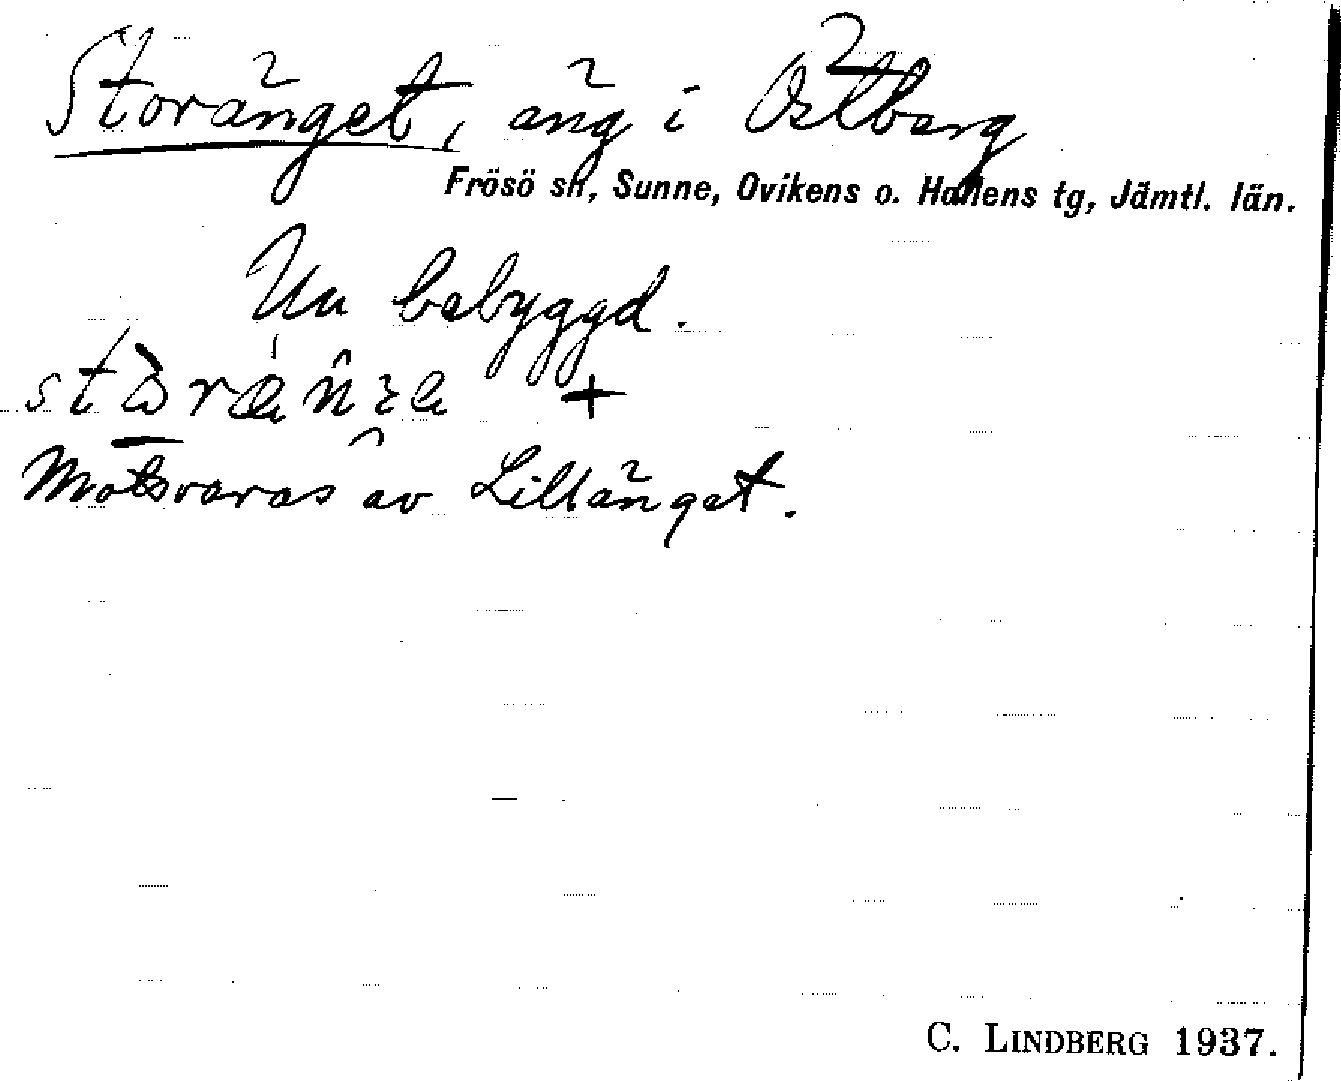 Storänget, äng i Östberg
Frösö sn, Sunne, Ovikens o. Hallens tg, Jämtl. län.
Nu bebyggd.
Motsvaras av Lillänget.
C. LINDBERG 1937.